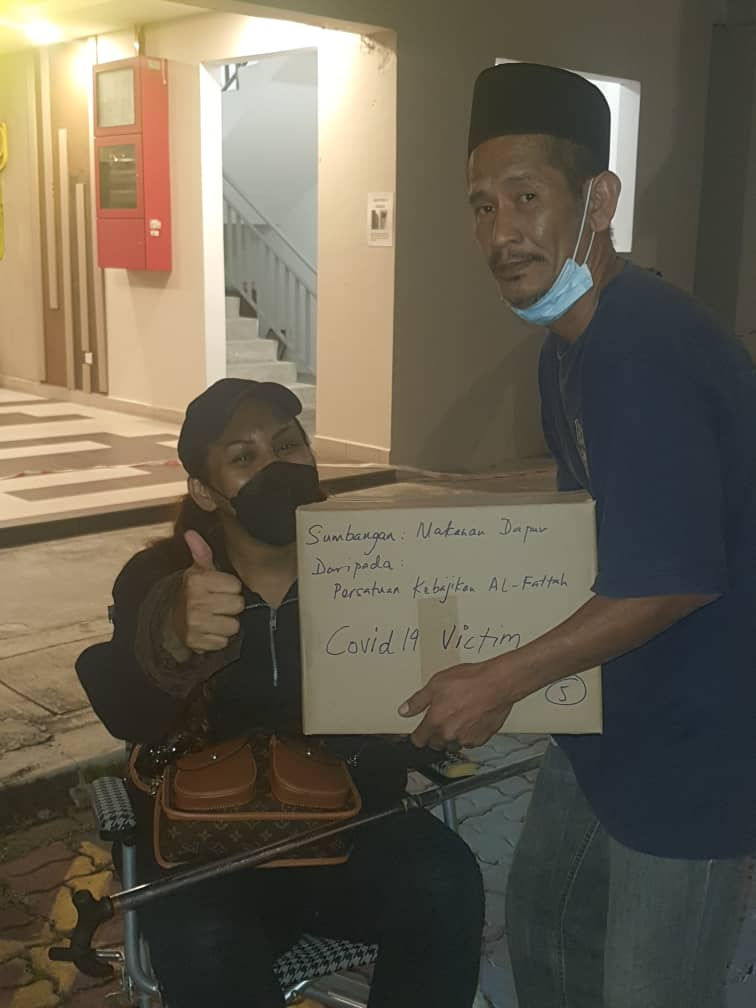 Sumbangan: Makanan Dapur
Daripada:
Persatuan Kebajikan AL-Fattah
Covid 19 Victim
5